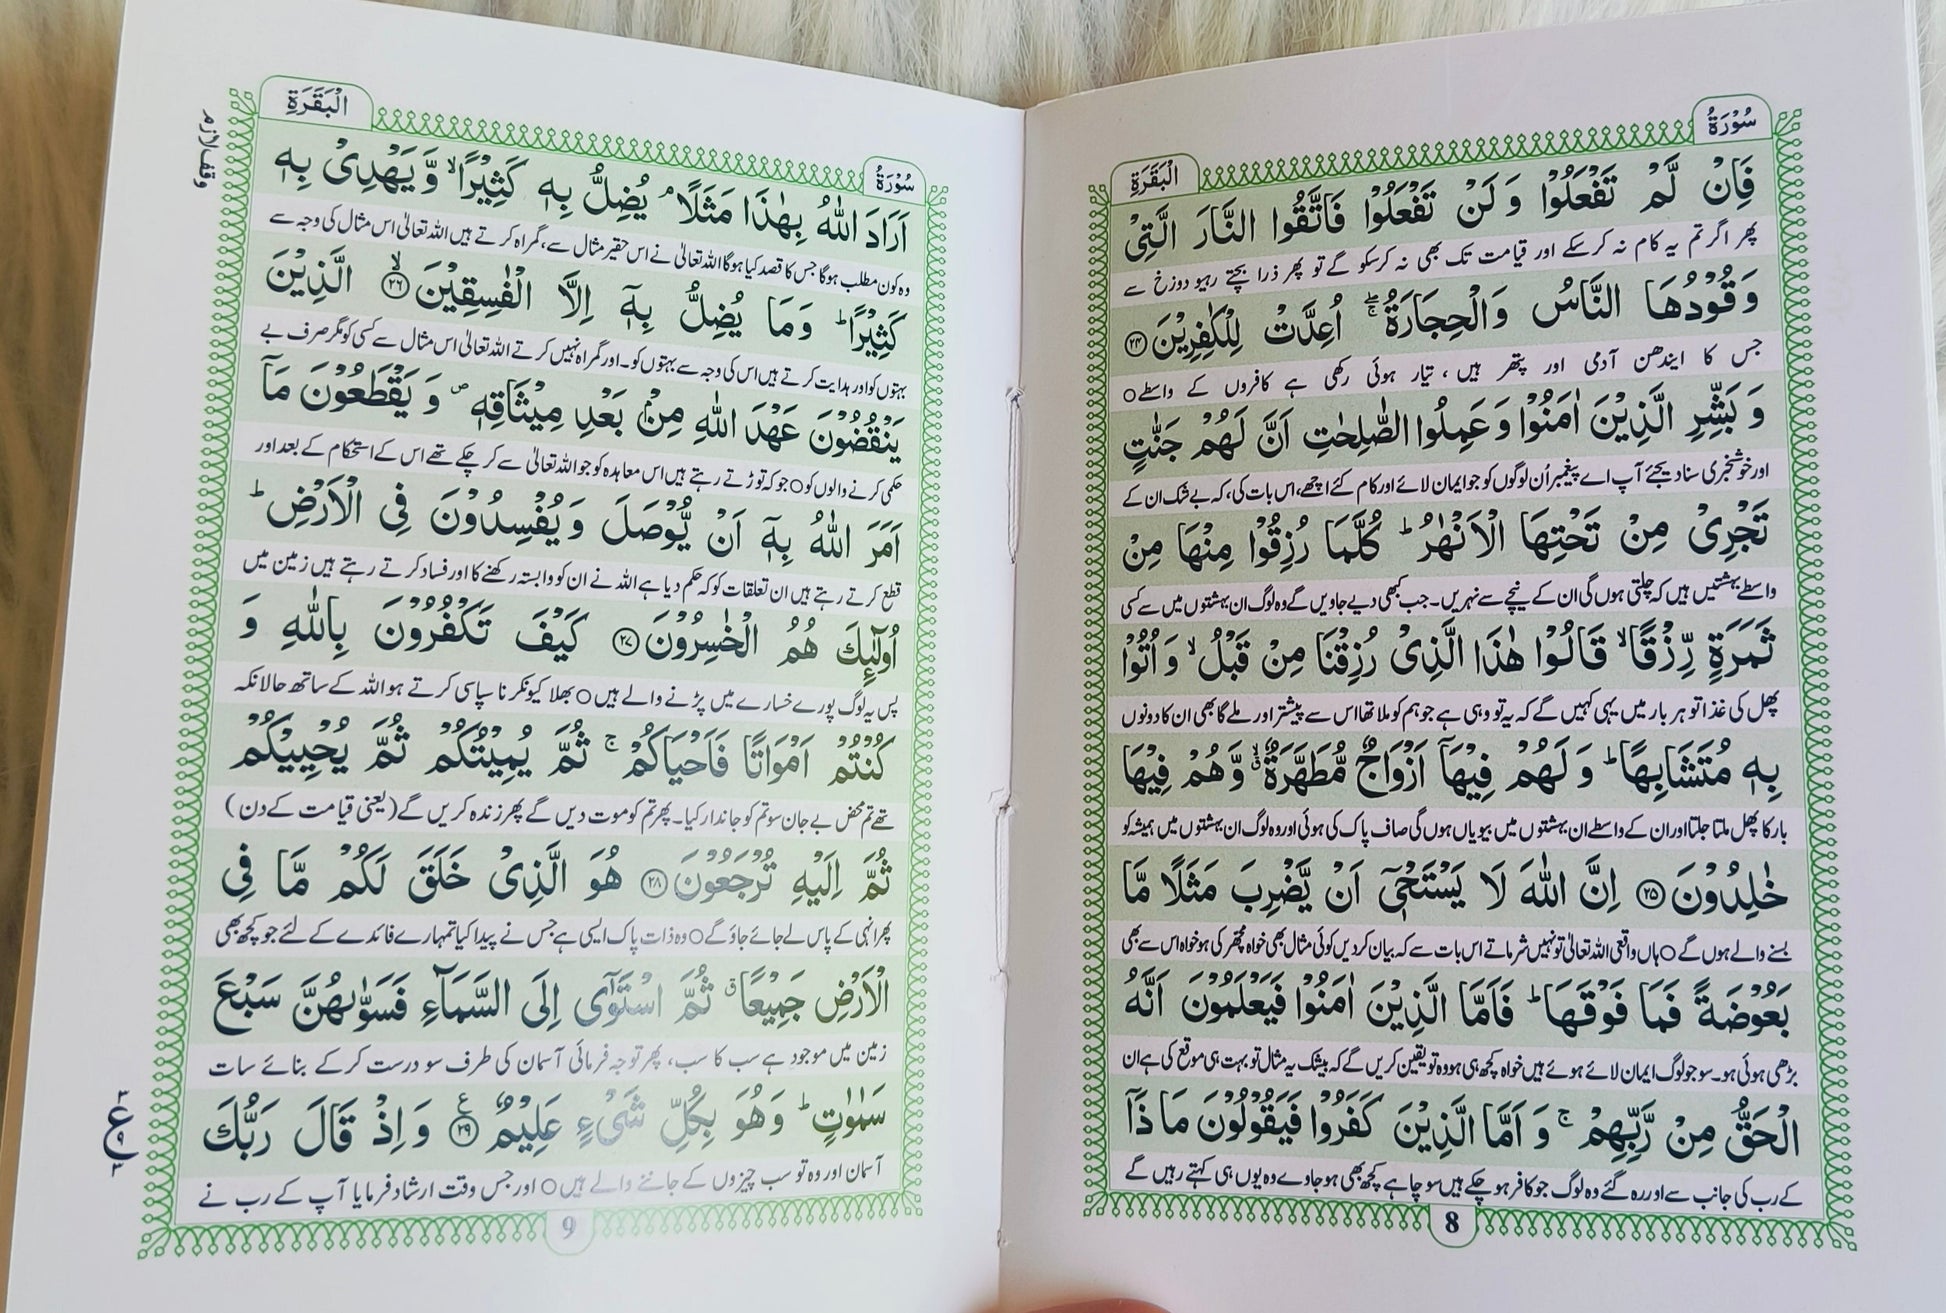 سُوْرَةُ
الْبَقَرَةِ
فَاِنْ لَّمْ تَفْعَلُوْا وَ لَنْ تَفْعَلُوْا فَاتَّقُوا النَّارَ الَّتِيْ
پھر اگر تم یہ کام نہ کرسکے اور قیامت تک بھی نہ کرسکو گے تو پھر ذرا بچتے رہیو دوزخ سے
وَقُوْدُهَا النَّاسُ وَالْحِجَارَةُ ۖۚ اُعِدَّتْ لِلْكٰفِرِيْنَ ۝۲۴
جس کا ایندھن آدمی اور پتھر ہیں ، تیار ہوئی رکھی ہے کافروں کے واسطے○
وَ بَشِّرِ الَّذِيْنَ اٰمَنُوْا وَ عَمِلُوا الصّٰلِحٰتِ اَنَّ لَهُمْ جَنّٰتٍ
اور خوشخبری سنا دیجئے آپ اے پیغمبر اُن لوگوں کو جو ایمان لائے اور کام کئے اچھے، اس بات کی، کہ بے شک ان کے
تَجْرِيْ مِنْ تَحْتِهَا الْاَنْهٰرُ ؕ كُلَّمَا رُزِقُوْا مِنْهَا مِنْ
واسطے بہشتیں ہیں کہ چلتی ہوں گی ان کے نیچے سے نہریں۔ جب کبھی دیے جاویں گے وہ لوگ ان بہشتوں میں سے کسی
ثَمَرَةٍ رِّزْقًا ۙ قَالُوْا هٰذَا الَّذِيْ رُزِقْنَا مِنْ قَبْلُ ۙ وَ اُتُوْا
پھل کی غذا تو ہر بار میں یہی کہیں گے کہ یہ تو وہی ہے جو ہم کو ملا تھا اس سے پیشتر اور ملے گا بھی ان کا دونوں
بِهٖ مُتَشَابِهًا ؕ وَ لَهُمْ فِيْهَاۤ اَزْوَاجٌ مُّطَهَّرَةٌ ۙۗ وَّ هُمْ فِيْهَا
بار کا پھل ملتا جلتا اور ان کے واسطے ان بہشتوں میں بیویاں ہوں گی صاف پاک کی ہوئی اور وہ لوگ ان بہشتوں میں ہمیشہ کو
خٰلِدُوْنَ ۝۲۵ اِنَّ اللّٰهَ لَا يَسْتَحْيٖۤ اَنْ يَّضْرِبَ مَثَلًا مَّا
بسنے والے ہوں گے○ ہاں واقعی اللہ تعالیٰ تو نہیں شرماتے اس بات سے کہ بیان کردیں کوئی مثال بھی خواہ مچھر کی ہو خواہ اس سے بھی
بَعُوْضَةً فَمَا فَوْقَهَا ؕ فَاَمَّا الَّذِيْنَ اٰمَنُوْا فَيَعْلَمُوْنَ اَنَّهُ
بڑھی ہوئی ہو۔ سو جو لوگ ایمان لائے ہوئے ہیں خواہ کچھ ہی ہو وہ تو یقین کریں گے کہ بیشک یہ مثال تو بہت ہی موقع کی ہے ان
الْحَقُّ مِنْ رَّبِّهِمْ ۚ وَ اَمَّا الَّذِيْنَ كَفَرُوْا فَيَقُوْلُوْنَ مَا ذَاۤ
کے رب کی جانب سے اور رہ گئے وہ لوگ جو کافر ہو چکے ہیں سو چاہے کچھ بھی ہو جاوے وہ یوں ہی کہتے رہیں گے
8
سُوْرَةُ
الْبَقَرَةِ
وقف لازم
اَرَادَ اللّٰهُ بِهٰذَا مَثَلًا ۘ يُضِلُّ بِهٖ كَثِيْرًا ۙ وَّ يَهْدِيْ بِهٖ
وہ کون مطلب ہوگا جس کا قصد کیا ہوگا اللہ تعالیٰ نے اس حقیر مثال سے، گمراہ کرتے ہیں اللہ تعالیٰ اس مثال کی وجہ سے
كَثِيْرًا ؕ وَمَا يُضِلُّ بِهٖۤ اِلَّا الْفٰسِقِيْنَ ۝۲۶ۙ الَّذِيْنَ
بہتوں کو اور ہدایت کرتے ہیں اس کی وجہ سے بہتوں کو۔ اور گمراہ نہیں کرتے اللہ تعالیٰ اس مثال سے کسی کو مگر صرف بے
يَنْقُضُوْنَ عَهْدَ اللّٰهِ مِنْۢ بَعْدِ مِيْثَاقِهٖ ۪ وَ يَقْطَعُوْنَ مَاۤ
حکمی کرنے والوں کو○ جو کہ توڑتے رہتے ہیں اس معاہدہ کو جو اللہ تعالیٰ سے کر چکے تھے اس کے استحکام کے بعد اور
اَمَرَ اللّٰهُ بِهٖۤ اَنْ يُّوْصَلَ وَ يُفْسِدُوْنَ فِي الْاَرْضِ ؕ
قطع کرتے رہتے ہیں ان تعلقات کو کہ حکم دیا ہے اللہ نے ان کو وابستہ رکھنے کا اور فساد کرتے رہتے ہیں زمین میں
اُولٰٓئِكَ هُمُ الْخٰسِرُوْنَ ۝۲۷ كَيْفَ تَكْفُرُوْنَ بِاللّٰهِ وَ
پس یہ لوگ پورے خسارے میں پڑنے والے ہیں○ بھلا کیونکر نا سپاسی کرتے ہو اللہ کے ساتھ حالانکہ
كُنْتُمْ اَمْوَاتًا فَاَحْيَاكُمْ ۚ ثُمَّ يُمِيْتُكُمْ ثُمَّ يُحْيِيْكُمْ
تھے تم محض بے جان سو تم کو جاندار کیا۔ پھر تم کو موت دیں گے پھر زندہ کریں گے (یعنی قیامت کے دن)
ثُمَّ اِلَيْهِ تُرْجَعُوْنَ ۝۲۸ هُوَ الَّذِيْ خَلَقَ لَكُمْ مَّا فِي
پھر انہی کے پاس لے جائے جاؤ گے○ وہ ذات پاک ایسی ہے جس نے پیدا کیا تمہارے فائدے کے لئے جو کچھ بھی
الْاَرْضِ جَمِيْعًا ۗ ثُمَّ اسْتَوٰۤى اِلَى السَّمَآءِ فَسَوّٰىهُنَّ سَبْعَ
زمین میں موجود ہے سب کا سب، پھر توجہ فرمائی آسمان کی طرف سو درست کرکے بنائے سات
سَمٰوٰتٍ ؕ وَهُوَ بِكُلِّ شَيْءٍ عَلِيْمٌ ۝۲۹ وَ اِذْ قَالَ رَبُّكَ
آسمان اور وہ تو سب چیزوں کے جاننے والے ہیں○ اور جس وقت ارشاد فرمایا آپ کے رب نے
۳ ع ۹ ۳
9